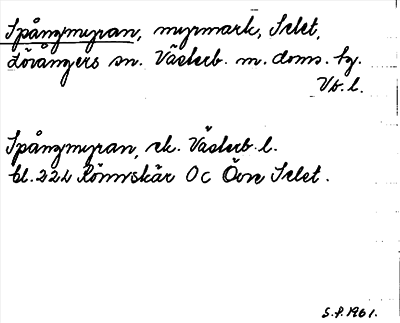 Spångmyran, myrmark, Selet,
Lövångers sn. Västerb. m. doms. hg.
Vb. l.
Spångmyran, ek. Västerb. l.
bl. 222 Rönnskär OC Övre Selet.
S.f. 1961.